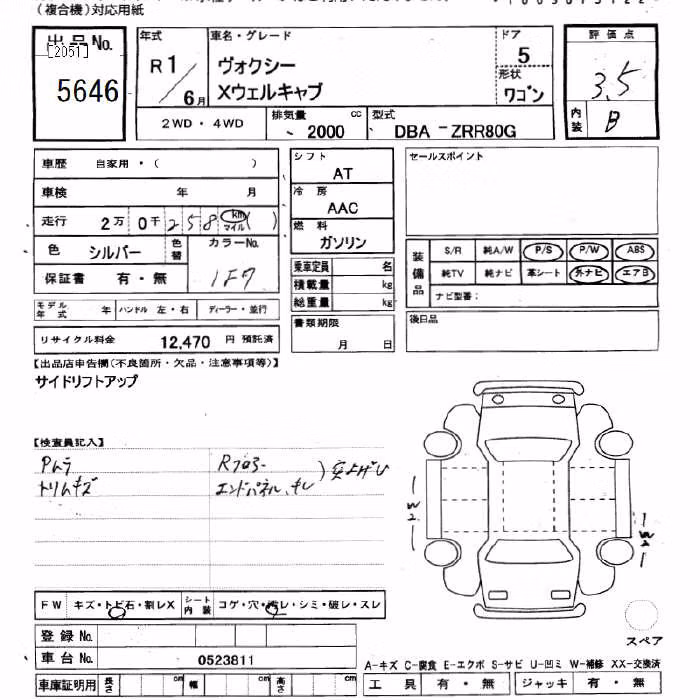 (複合機)対応用紙
出品No.
[2051]
5646
年式
R1/6月
車名・グレード
ヴォクシー
Xウェルキャブ
ドア
5
形状
ワゴン
評価点
3.5
内装
B
2WD・4WD
排気量
2000 cc
型式
DBA-ZRR80G
車歴 自家用・( )
車検 年 月
走行 2万 0千 2 5 8 km マイル ( )
色 シルバー 色替
カラーNo.
1F7
保証書 有・無
シフト
AT
冷房
AAC
燃料
ガソリン
乗車定員 名
積載量 kg
総重量 kg
書類期限
月 日
セールスポイント
装備品
S/R 純A/W P/S P/W ABS
純TV 純ナビ 革シート 外ナビ エアB
ナビ型番:
後日品
モデル年式 年 ハンドル 左・右 ディーラー・並行
リサイクル料金 12,470 円 預託済
【出品店申告欄(不良箇所・欠品・注意事項等)】
サイドリフトアップ
【検査員記入】
Pムラ
トリムキズ
Rフロアー
エンドパネル
W2
W2
FW キズ・トビ石・割レX
シート内装 コゲ・穴・汚レ・シミ・破レ・スレ
登録No.
車台No. 0523811
車庫証明用 長さ cm 幅 cm 高さ cm
スペア
A-キズ C-腐食 E-エクボ S-サビ U-凹ミ W-補修 XX-交換済
工具 有・無 ジャッキ 有・無